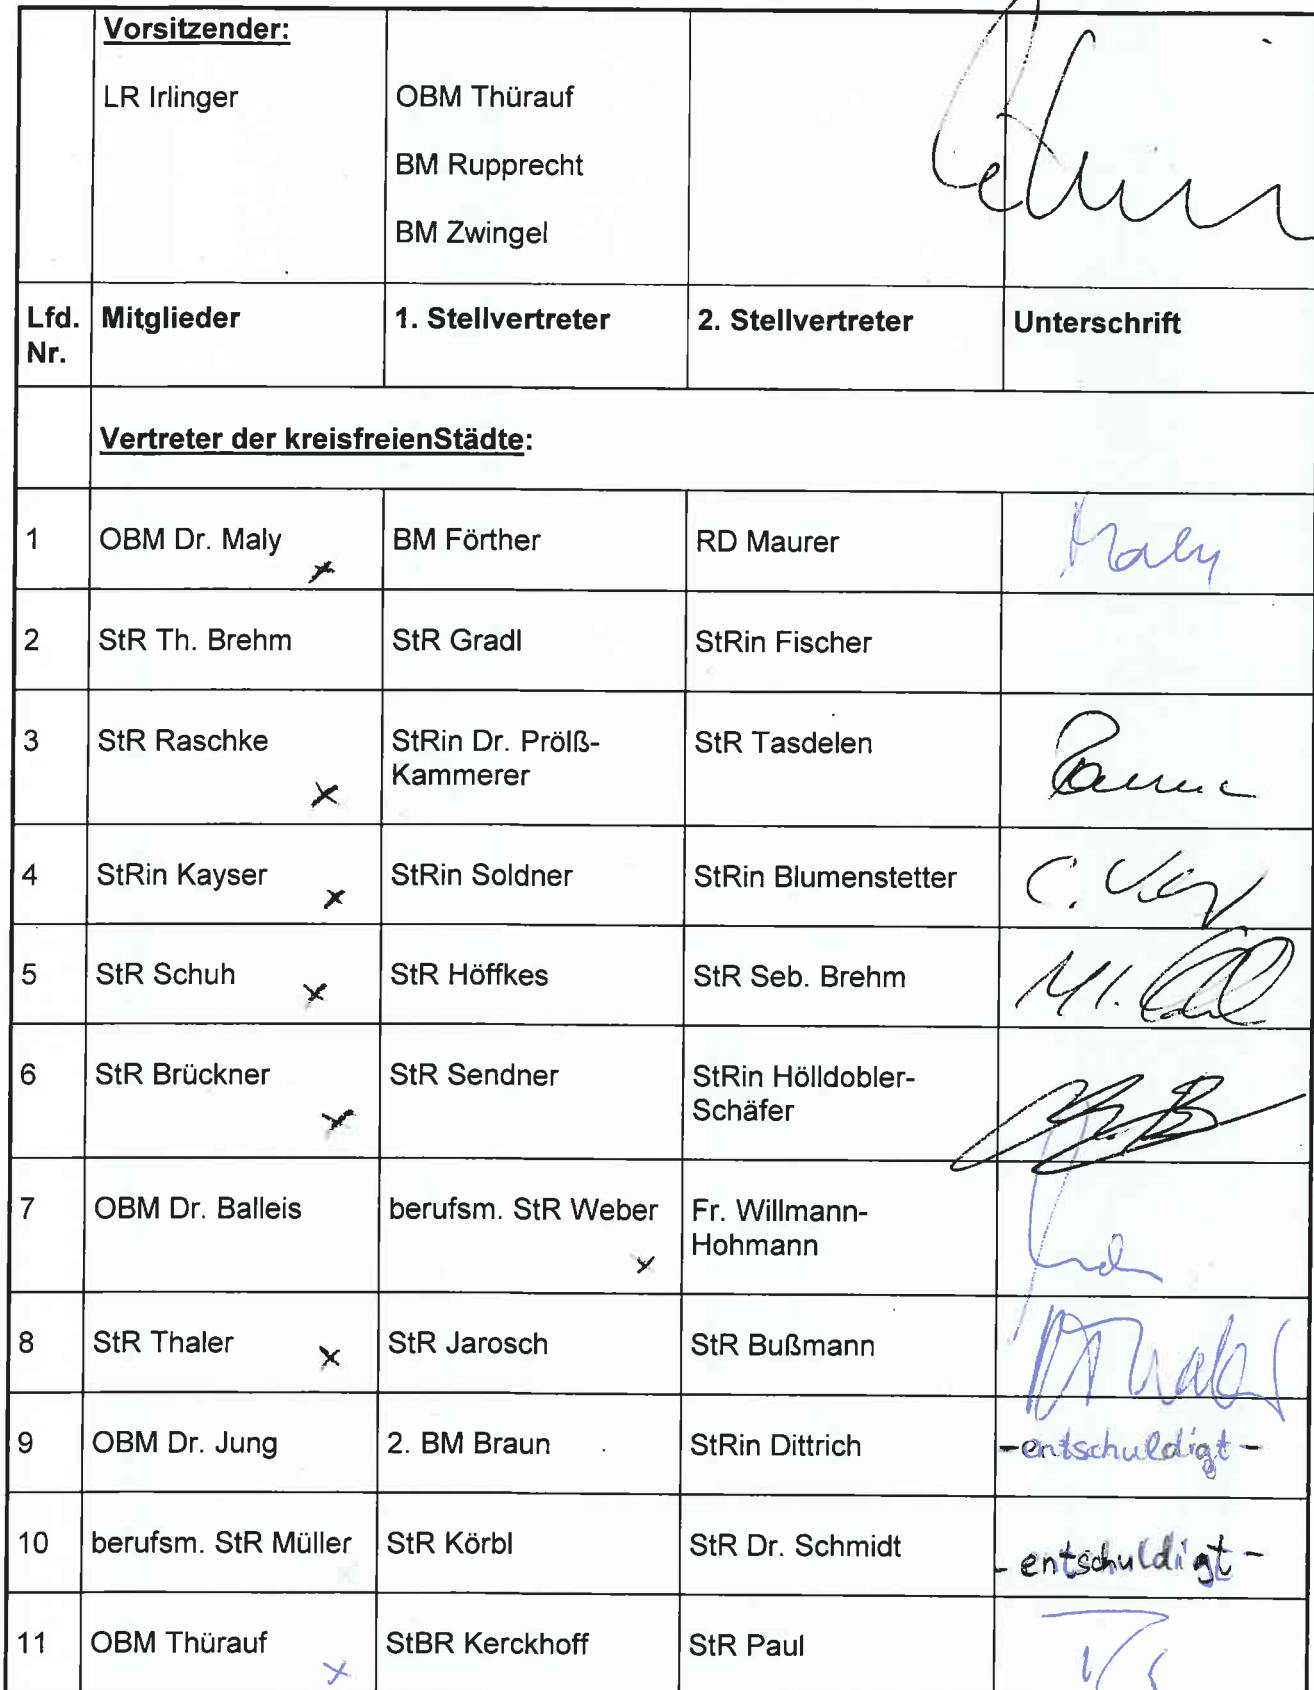 Vorsitzender:
LR Irlinger OBM Thürauf
BM Rupprecht
BM Zwingel
Lfd. Mitglieder 1. Stellvertreter 2. Stellvertreter Unterschrift
Nr.
Vertreter der kreisfreienStädte:
1 OBM Dr. Maly x BM Förther RD Maurer Maly
2 StR Th. Brehm StR Gradl StRin Fischer
3 StR Raschke x StRin Dr. Prölß- StR Tasdelen
Kammerer
4 StRin Kayser x StRin Soldner StRin Blumenstetter
5 StR Schuh x StR Höffkes StR Seb. Brehm
6 StR Brückner x StR Sendner StRin Hölldobler-
Schäfer
7 OBM Dr. Balleis berufsm. StR Weber x Fr. Willmann-
Hohmann
8 StR Thaler x StR Jarosch StR Bußmann
9 OBM Dr. Jung 2. BM Braun StRin Dittrich -entschuldigt-
10 berufsm. StR Müller StR Körbl StR Dr. Schmidt -entschuldigt-
11 OBM Thürauf x StBR Kerckhoff StR Paul